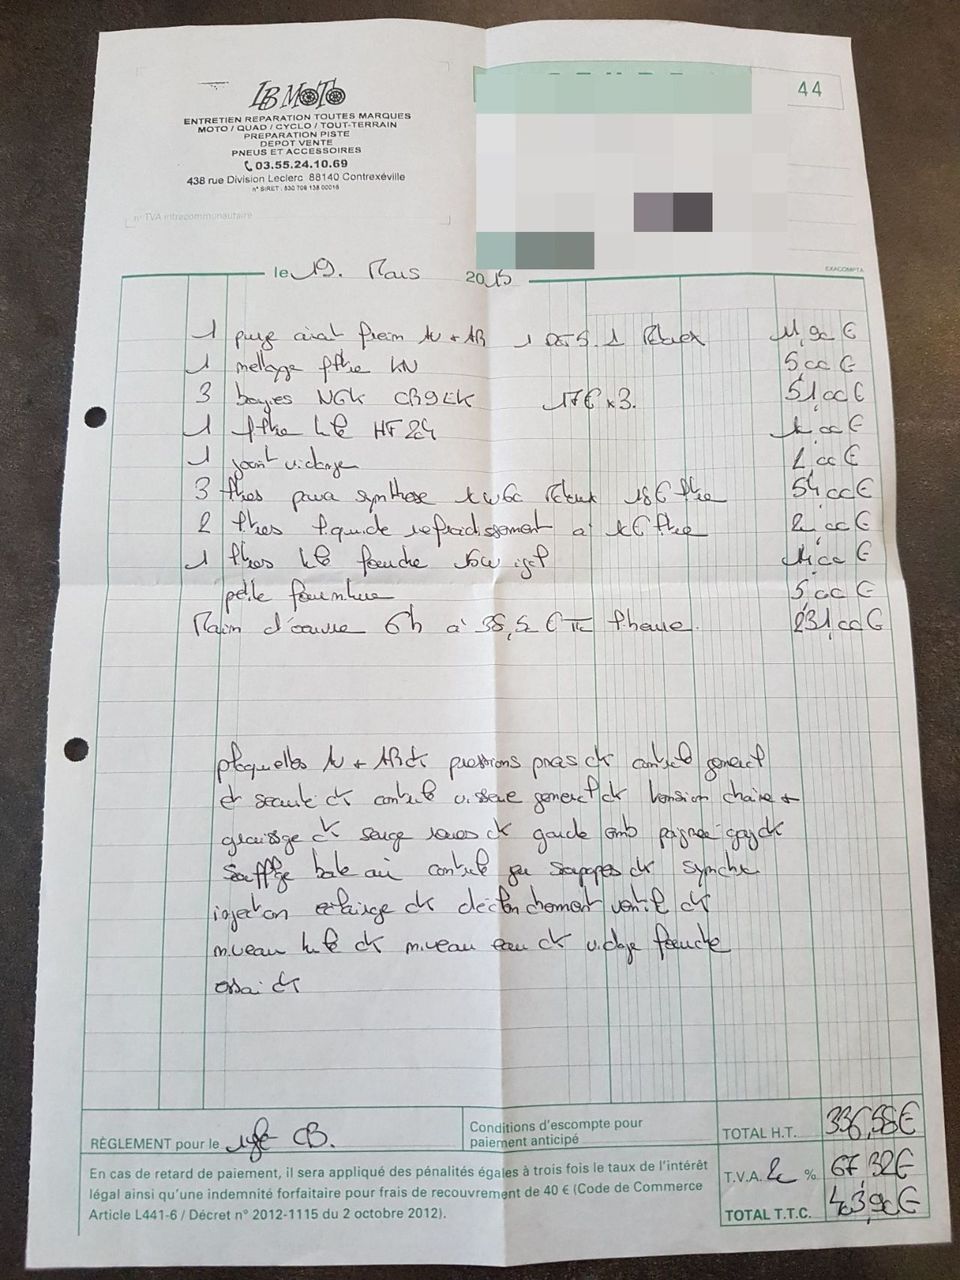 LB MOTO
ENTRETIEN REPARATION TOUTES MARQUES
MOTO / QUAD / CYCLO / TOUT-TERRAIN
PREPARATION PISTE
DEPOT VENTE
PNEUS ET ACCESSOIRES
03.55.24.10.69
438 rue Division Leclerc 88140 Contrexéville
n° SIRET : 830 708 138 00016
n° TVA intracommunautaire
44
EXACOMPTA
le 19. Mars 2015
1 purge frein AV + AR 1 DOT 5.1 11,90 €
1 filtre KN 5,00 €
3 bougies NGK CR9EK 17€ x 3. 51,00 €
1 filtre HF 204
1 joint vidange 2,00 €
3 synthese 18 € 54,00 €
2 liquide refroidissement à
1 fourche 10W
petite fourniture 5,00 €
Main d'oeuvre 6h à 38,5 € TTC l'heure. 231,00 €
plaquettes AV + AR ok pressions pneus ok controle general
et securite ok controle visserie general ok tension chaine +
graissage ok ok garde
Soufflage boite air controle jeu soupapes ok synchro
injection eclairage ok declenchement ventilo ok
niveau ok niveau eau ok vidange fourche
essai ok
RÈGLEMENT pour le CB.
Conditions d'escompte pour
paiement anticipé
TOTAL H.T. 336,58 €
En cas de retard de paiement, il sera appliqué des pénalités égales à trois fois le taux de l'intérêt
légal ainsi qu'une indemnité forfaitaire pour frais de recouvrement de 40 € (Code de Commerce
Article L441-6 / Décret n° 2012-1115 du 2 octobre 2012).
T.V.A. 20 % 67,32 €
TOTAL T.T.C. 403,90 €